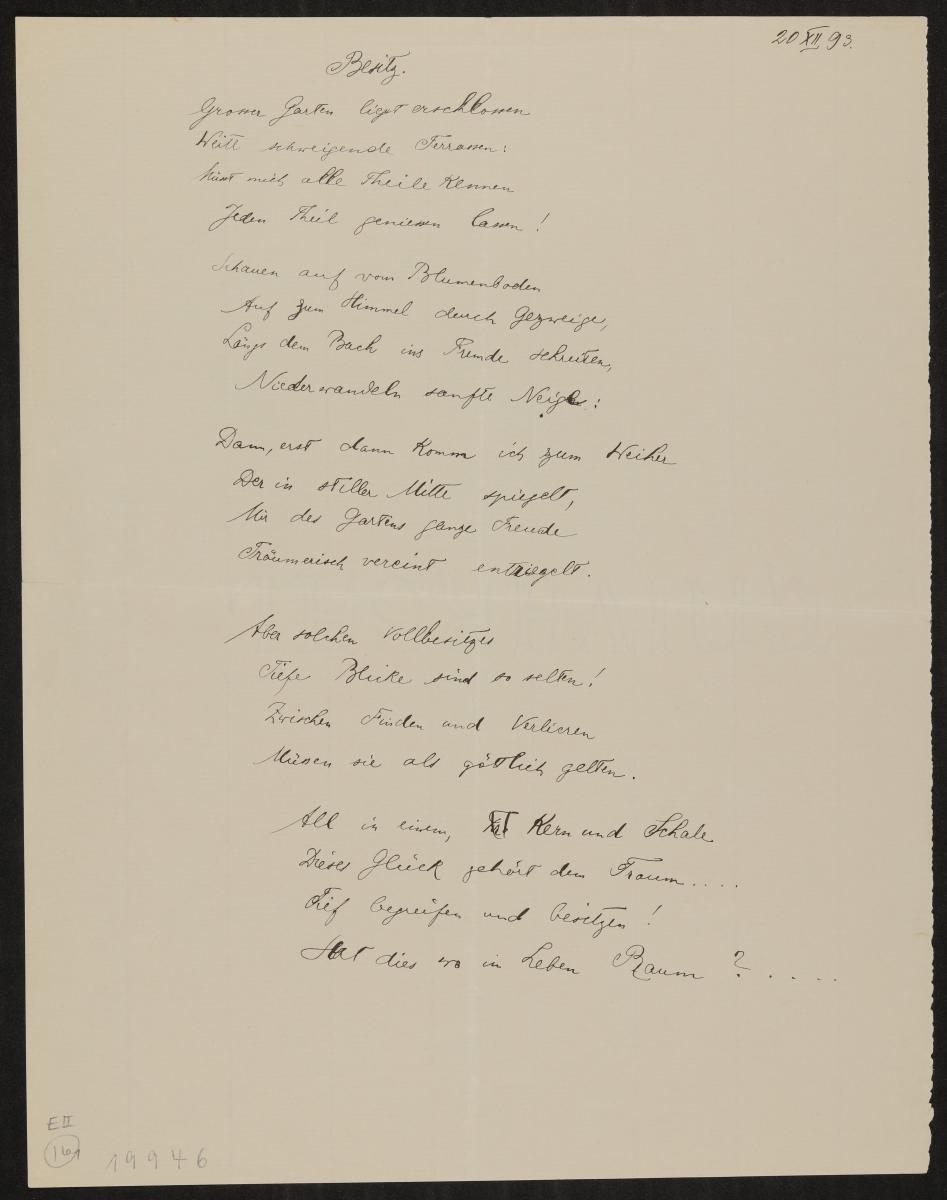 20 XII 93.
Besitz.
Grosser Garten liegt erschlossen
Weite schweigende Terrassen:
Müsst mich alle Theile kennen
Jeden Theil geniessen lassen!
Schauen auf vom Blumenboden
Auf zum Himmel durch Gezweige,
Längs dem Bach ins Fremde schreiten,
Niederwandeln sanfte Neige:
Dann, erst dann komm ich zum Weiher
Der in stiller Mitte spiegelt,
Mir des Gartens ganze Freude
Träumerisch vereint entriegelt.
Aber solchen Vollbesitzes
Tiefe Blicke sind so selten!
Zwischen Finden und Verlieren
Müssen sie als göttlich gelten.
All in einem, Kern und Schale
Dieses Glück gehört dem Traum....
Tief begreifen und besitzen!
Hat dies wo im Leben Raum?.....
E II
19946